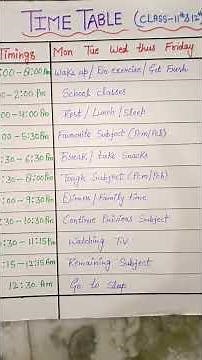 TIME TABLE (CLASS-11th & 12th
Timings Mon Tue Wed thus Friday
:00-6:00 Am Wake up/ Do exercise/ Get Fresh
00-2:00 Pm School classes
00-4:00 Pm Rest / Lunch / Sleep
00-5:30 Pm Favourite Subject
:30-6:30 Pm Break/ take Snacks
:30-8:00 Pm Tough Subject
:00-9:30 Pm Dinner/Family time
:30-10:30 Pm Continue Pervious Subject
:30-11:15 Pm Watching T.V
:15-12:15 Am Remaining Subject
12:30 Am Go to Sleep